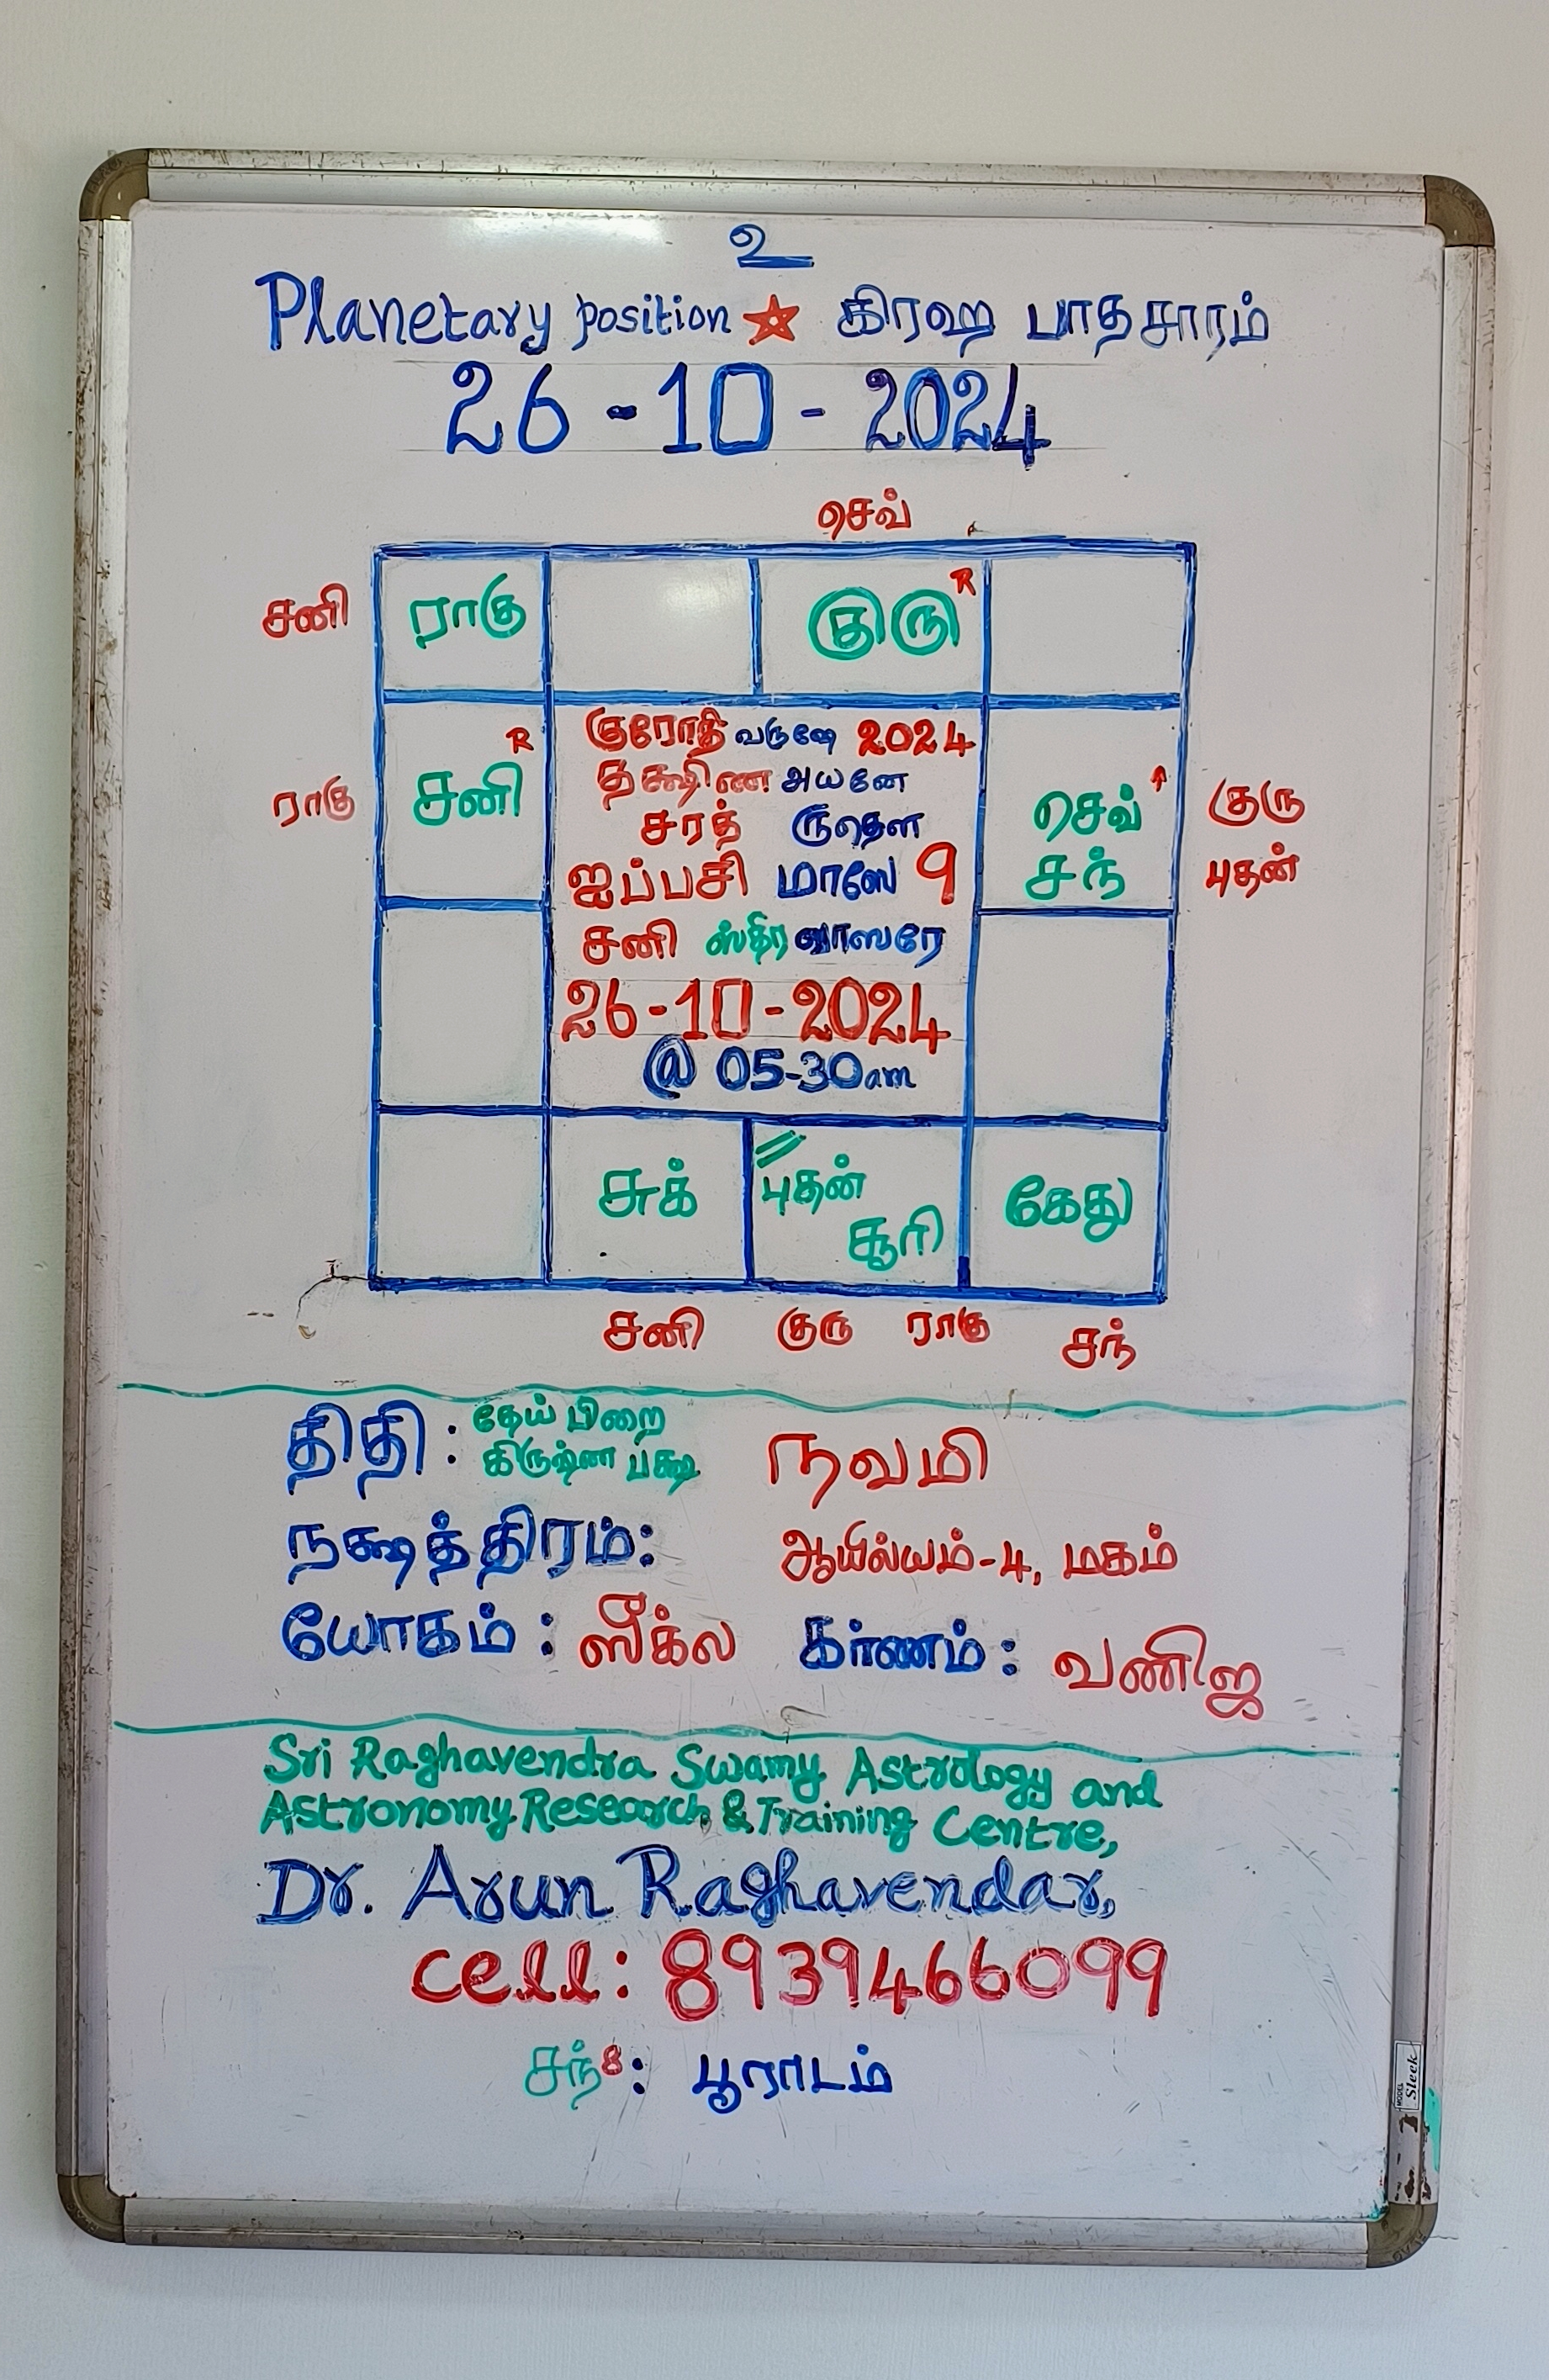 உ
Planetary position ★ கிரஹ பாதசாரம்
26-10-2024
செவ்
சனி ராகு குரு R
R
ராகு சனி செவ் குரு
சந் புதன்
குரோதி வருஷே 2024
தக்ஷிண அயனே
சரத் ருதௌ
ஐப்பசி மாஸே 9
சனி ஸ்திர வாஸரே
26-10-2024
@ 05-30am
சுக் புதன் கேது
சூரி
சனி குரு ராகு சந்
திதி : தேய் பிறை நவமி
கிருஷ்ண பக்ஷ
நக்ஷத்திரம்: ஆயில்யம்-4, மகம்
யோகம் : ஸீக்ல கர்ணம் : வணிஜ
Sri Raghavendra Swamy Astrology and
Astronomy Research & Training Centre,
Dr. Arun Raghavendar,
cell: 8939466099
சந்8: பூராடம்
MODEL Sleek